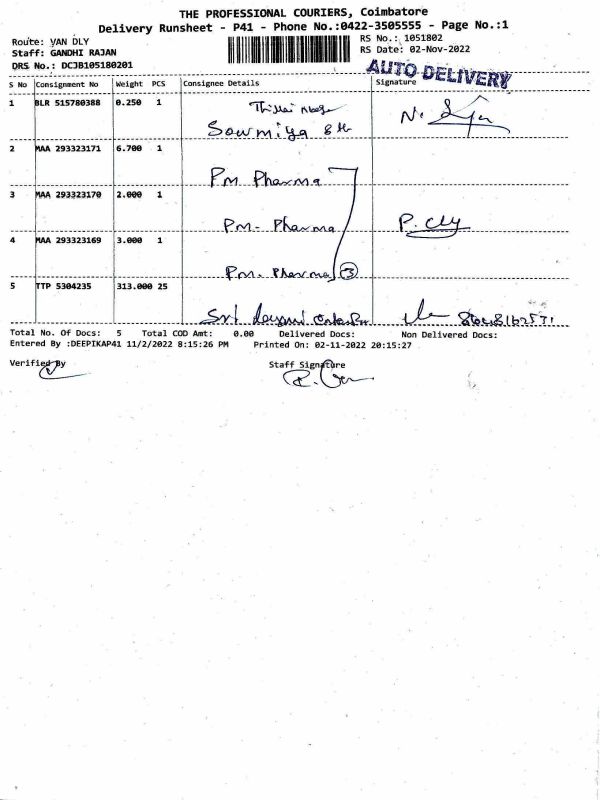 THE PROFESSIONAL COURIERS, Coimbatore
Delivery Runsheet - P41 - Phone No.:0422-3505555 - Page No.:1
Route: VAN DLY
RS No.: 1051802
Staff: GANDHI RAJAN
RS Date: 02-Nov-2022
DRS No.: DCJB105180201
AUTO DELIVERY
S No Consignment No Weight PCS Consignee Details Signature
1 BLR 515780388 0.250 1
Sowmiya 8th
2 MAA 293323171 6.700 1
Pm Pharma
3 MAA 293323170 2.000 1
Pm- Pharma
4 MAA 293323169 3.000 1
Pm. Pharma 3
5 TTP 5304235 313.000 25
Sri
Total No. Of Docs: 5 Total COD Amt: 0.00 Delivered Docs: Non Delivered Docs:
Entered By :DEEPIKAP41 11/2/2022 8:15:26 PM Printed On: 02-11-2022 20:15:27
Verified By Staff Signature